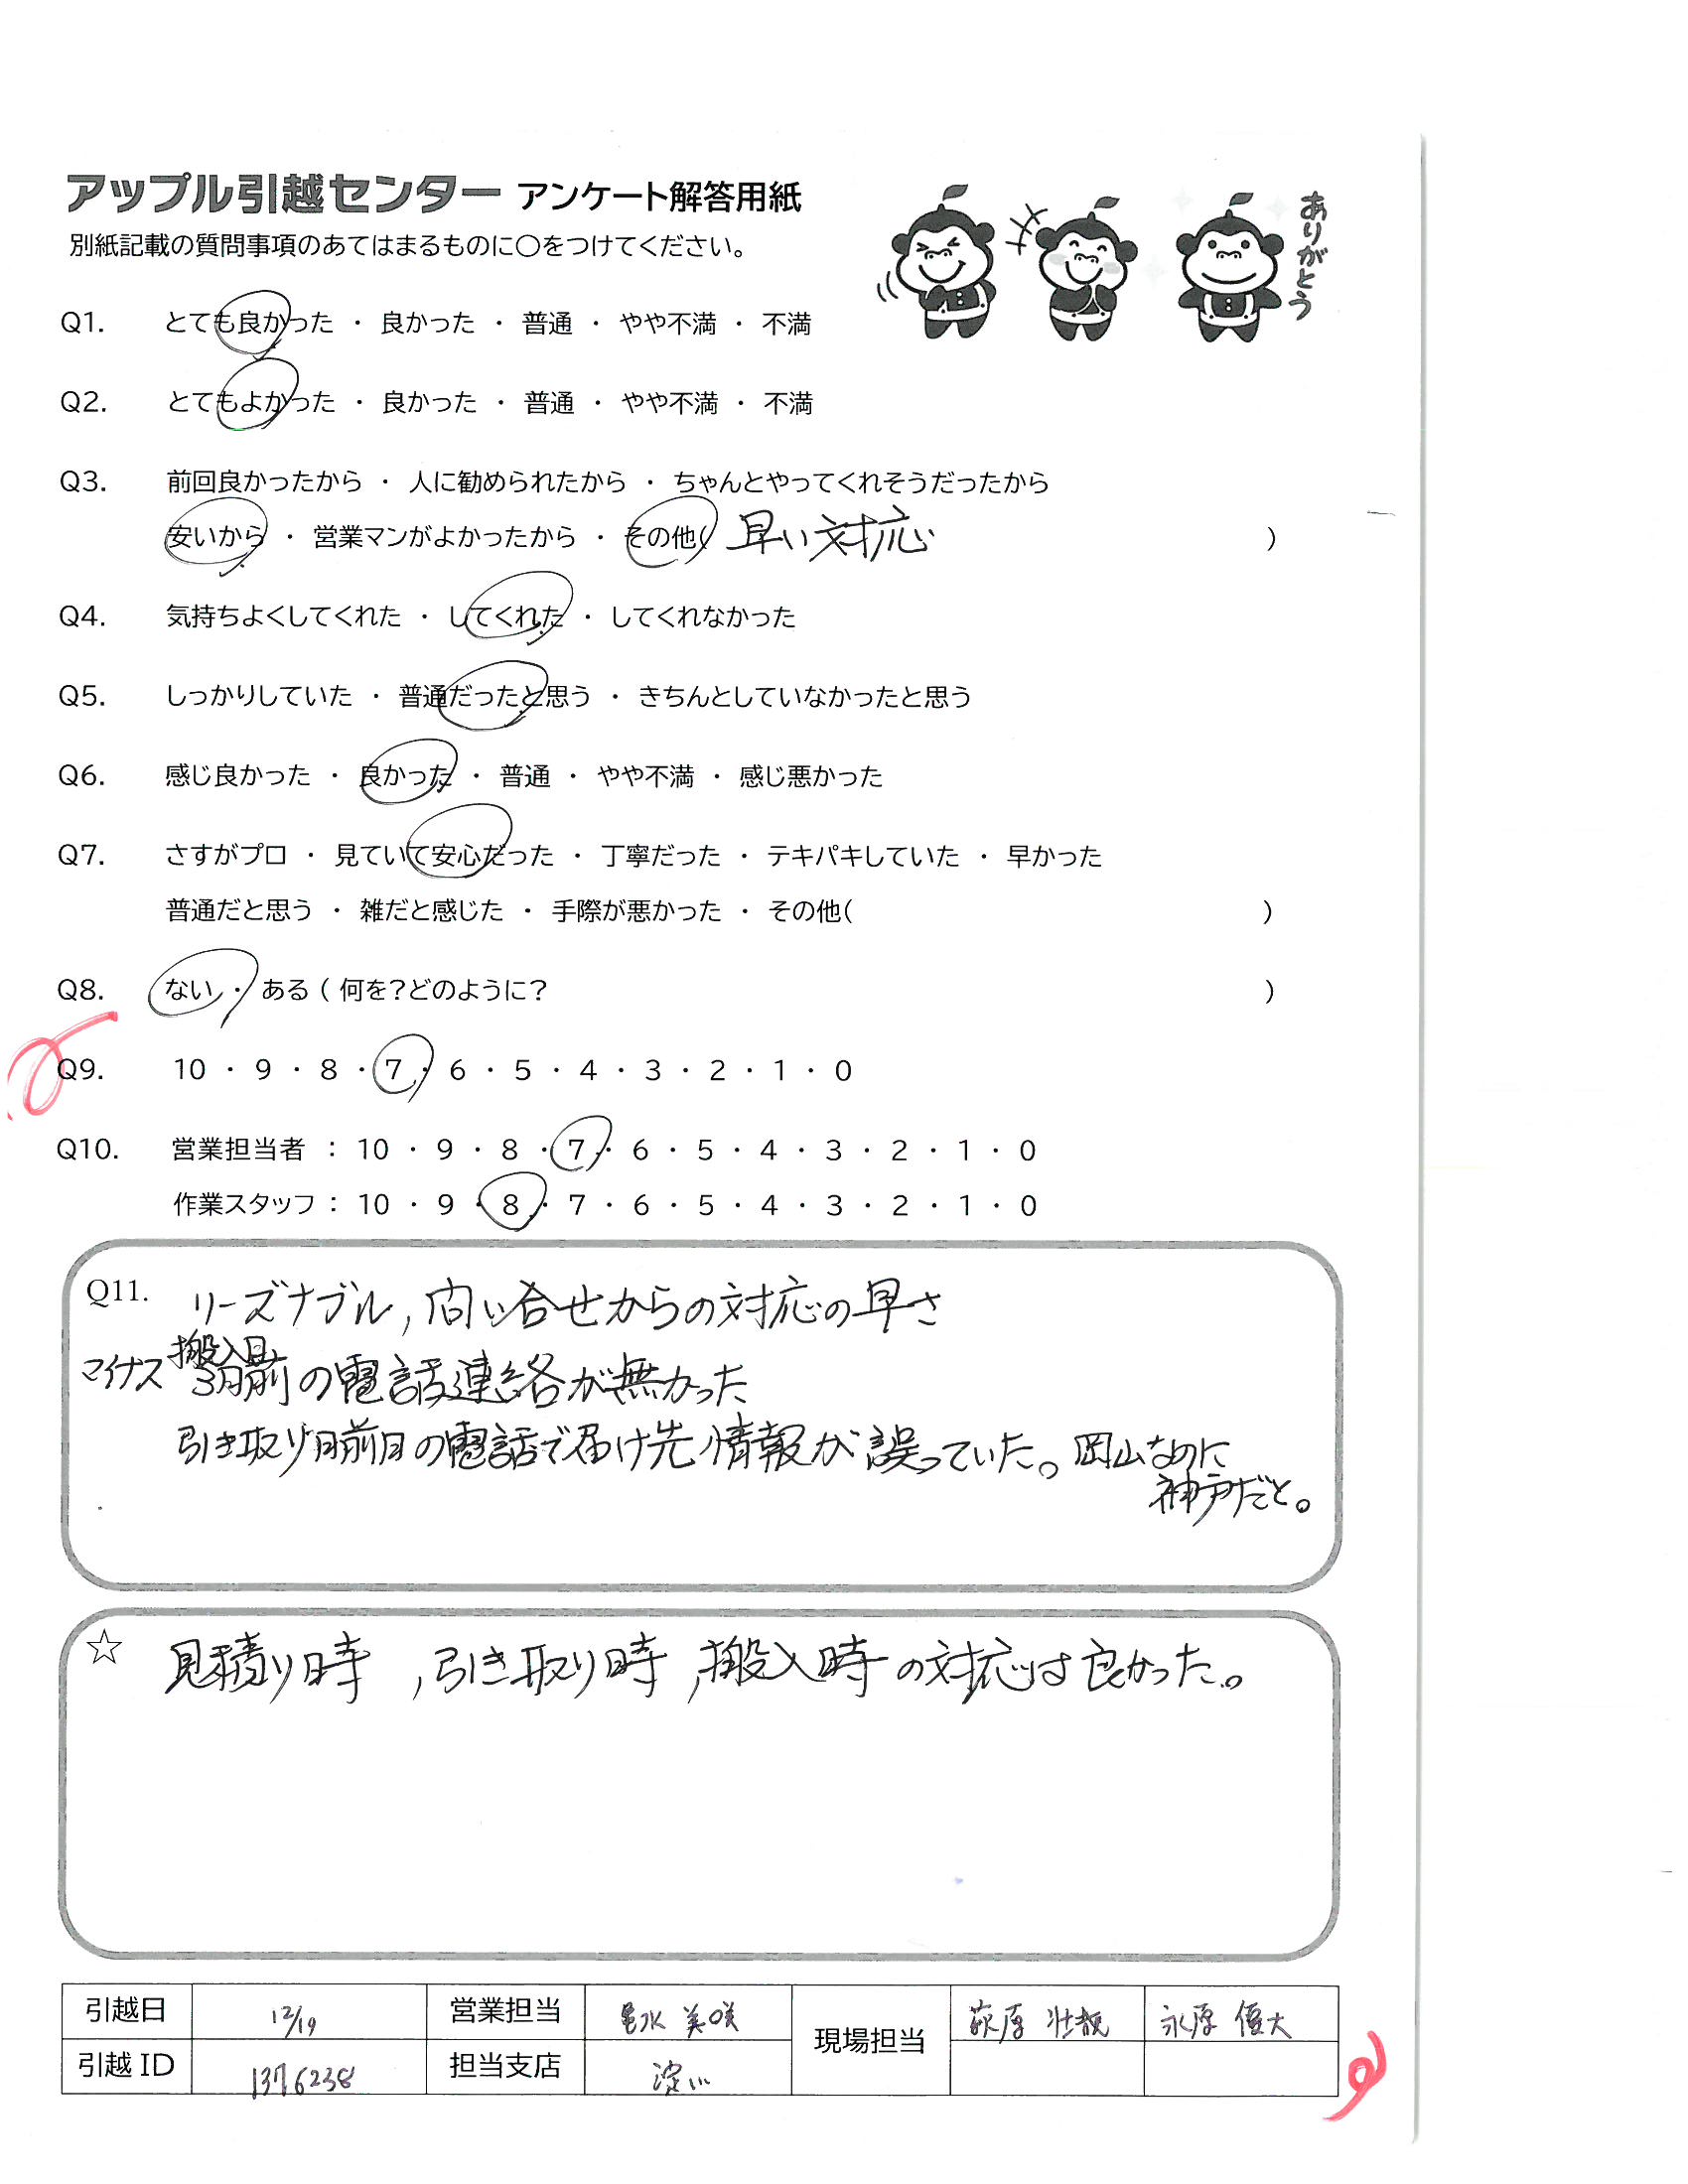 アップル引越センター アンケート解答用紙
別紙記載の質問事項のあてはまるものに〇をつけてください。
ありがとう
Q1. とても良かった ・ 良かった ・ 普通 ・ やや不満 ・ 不満
Q2. とてもよかった ・ 良かった ・ 普通 ・ やや不満 ・ 不満
Q3. 前回良かったから ・ 人に勧められたから ・ ちゃんとやってくれそうだったから
安いから ・ 営業マンがよかったから ・ その他( 早い対応 )
Q4. 気持ちよくしてくれた ・ してくれた ・ してくれなかった
Q5. しっかりしていた ・ 普通だったと思う ・ きちんとしていなかったと思う
Q6. 感じ良かった ・ 良かった ・ 普通 ・ やや不満 ・ 感じ悪かった
Q7. さすがプロ ・ 見ていて安心だった ・ 丁寧だった ・ テキパキしていた ・ 早かった
普通だと思う ・ 雑だと感じた ・ 手際が悪かった ・ その他( )
Q8. ない ・ ある ( 何を?どのように? )
Q9. 10 ・ 9 ・ 8 ・ 7 ・ 6 ・ 5 ・ 4 ・ 3 ・ 2 ・ 1 ・ 0
Q10. 営業担当者 : 10 ・ 9 ・ 8 ・ 7 ・ 6 ・ 5 ・ 4 ・ 3 ・ 2 ・ 1 ・ 0
作業スタッフ : 10 ・ 9 ・ 8 ・ 7 ・ 6 ・ 5 ・ 4 ・ 3 ・ 2 ・ 1 ・ 0
Q11. リーズナブル, 問い合せからの対応の早さ
搬入日
マイナス 3日前の電話連絡が無かった
引き取り日前日の電話で届け先情報が誤っていた。岡山なのに
神戸だと。
☆ 見積り時 , 引き取り時 , 搬入時の対応は良かった。
引越日 12/19 営業担当 美咲 現場担当 荻原 壮哉 永原 優大
引越ID 1376238 担当支店 淀川